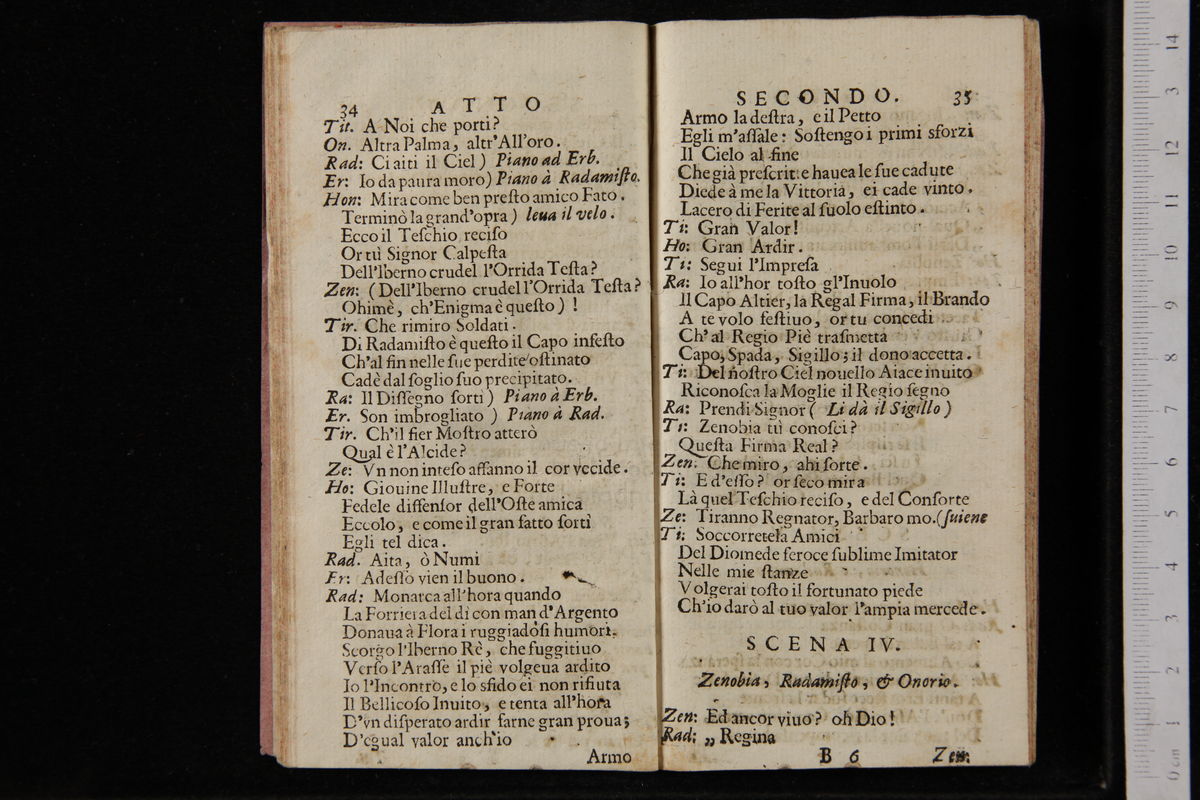 34 ATTO
Tit. A Noi che porti?
On. Altra Palma, altr'All'oro.
Rad: Ci aiti il Ciel) Piano ad Erb.
Er: Io da paura moro) Piano à Radamiſto.
Hon: Mira come ben preſto amico Fato.
Terminò la grand'opra) leua il velo.
Ecco il Teſchio reciſo
Or tù Signor Calpeſta
Dell'Iberno crudel l'Orrida Teſta?
Zen: (Dell'Iberno crudel l'Orrida Teſta?
Ohimè, ch'Enigma è queſto) !
Tir. Che rimiro Soldati.
Di Radamiſto è queſto il Capo infeſto
Ch'al fin nelle ſue perdite oſtinato
Cadè dal ſoglio ſuo precipitato.
Ra: Il Diſſegno ſorti) Piano à Erb.
Er. Son imbrogliato ) Piano à Rad.
Tir. Ch'il fier Moſtro atterò
Qual è l'Alcide?
Ze: Vn non inteſo affanno il cor vccide.
Ho: Giouine Illuſtre, e Forte
Fedele diffenſor dell'Oſte amica
Eccolo, e come il gran fatto ſortì
Egli tel dica.
Rad. Aita, ò Numi
Er: Adeſſo vien il buono.
Rad: Monarca all'hora quando
La Forriera del dì con man d'Argento
Donaua à Flora i ruggiadoſi humori.
Scorgo l'Iberno Rè, che fuggitiuo
Verſo l'Araſſe il piè volgeua ardito
Io l'Incontro, e lo sfido ei non rifiuta
Il Bellicoſo Inuito, e tenta all'hora
D'vn diſperato ardir farne gran proua;
D'egual valor anch'io
Armo
SECONDO. 35
Armo la deſtra, e il Petto
Egli m'aſſale: Soſtengo i primi sforzi
Il Cielo al fine
Che già preſcritte hauea le ſue cadute
Diede à me la Vittoria, ei cade vinto.
Lacero di Ferite al ſuolo eſtinto.
Ti: Gran Valor!
Ho: Gran Ardir.
Ti: Segui l'Impreſa
Ra: Io all'hor toſto gl'Inuolo
Il Capo Altier, la Regal Firma, il Brando
A te volo feſtiuo, or tu concedi
Ch'al Regio Piè traſmetta
Capo, Spada, Sigillo; il dono accetta.
Ti: Del noſtro Ciel nouello Aiace inuito
Riconoſca la Moglie il Regio ſegno
Ra: Prendi Signor ( Li dà il Sigillo )
Ti: Zenobia tù conoſci?
Queſta Firma Real?
Zen: Che miro, ahi ſorte.
Ti: E d'eſſo? or ſeco mira
Là quel Teſchio reciſo, e del Conſorte
Ze: Tiranno Regnator, Barbaro mo.(ſuiene
Ti: Soccorretela Amici
Del Diomede feroce ſublime Imitator
Nelle mie ſtanze
Volgerai toſto il fortunato piede
Ch'io darò al tuo valor l'ampia mercede.
SCENA IV.
Zenobia, Radamiſto, & Onorio.
Zen: Ed ancor viuo? oh Dio!
Rad: „ Regina
B 6 Zen: